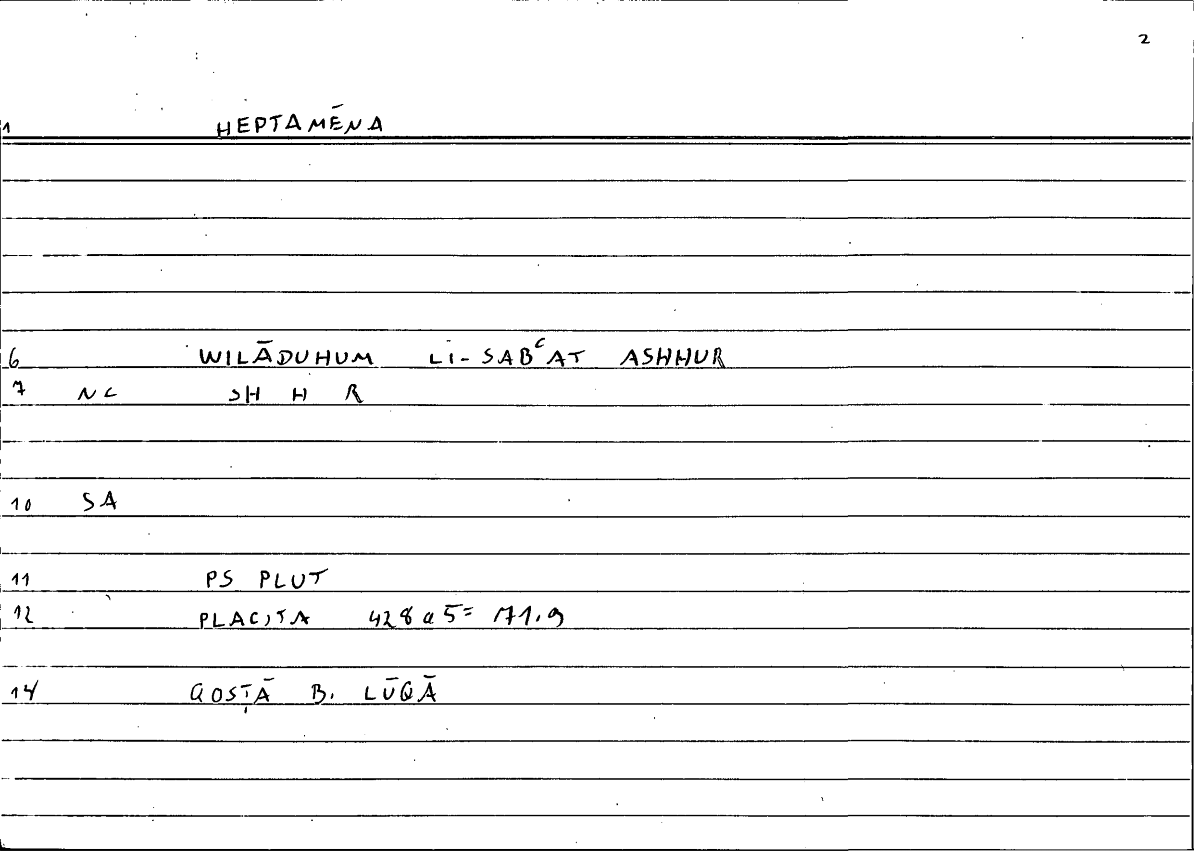 2
1 HEPTAMĒNA
6 WILĀDUHUM LI-SABʿAT ASHHUR
7 NC SH H R
10 SA
11 PS PLUT
12 PLACITA 428a5= 171,9
14 QOSṬĀ B. LŪQĀ